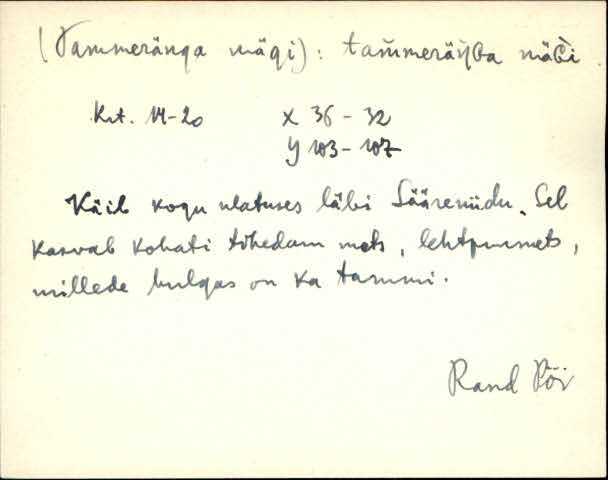 (Tammeränga mägi): tam̆meräŋGa mäGì
Krt. 14-20 X 36 - 32
Y 103 - 107
Käib kogu ulatuses läbi Sääreniidu. Sel
kasvab kohati tihedam mets, lehtpuumets,
millede hulgas on ka tammi.
Rand Pöi